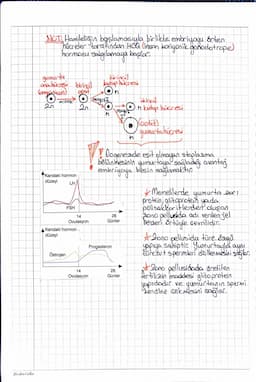 NOT: Hamileliğin başlamasıyla birlikte embriyoyu örten
hücreler tarafından HCG (insan koriyonik gonodotropi)
hormonu salgılamaya başlar.
yumurta
ana hücresi
(oogonyum)
2n
mitoz
birincil
oosit
2n
mayoz I
birincil
kutup hücresi
n
n
ikincil
kutup hücresi
n
(ootit)
yumurta hücresi
Oogenezde eşit olmayan stoplazma
bölünmesinin yumurtaya sağladığı avantaj
embriyoya besin sağlamaktır.
Kandaki hormon
düzeyi
LH
FSH
14
28
Ovulasyon
Günler
Kandaki hormon
düzeyi
Östrojen
Progesteron
14
28
Ovulasyon
Günler
Memelilerde yumurta zarı
protein, glikoprotein yada
polisakkaritlerden oluşan
zona pellusida adı verilen jel
benzeri örtüyle çevrilidir.
Zona pellusida türe özgü
yapıya sahiptir. Yumurtayı aynı
türün spermleri döllemesini sağlar.
Zona pellusidada üretilen
fertilizin maddesi glikoprotein
yapıdadır ve yumurtanın spermi
kendine çekmesini sağlar.